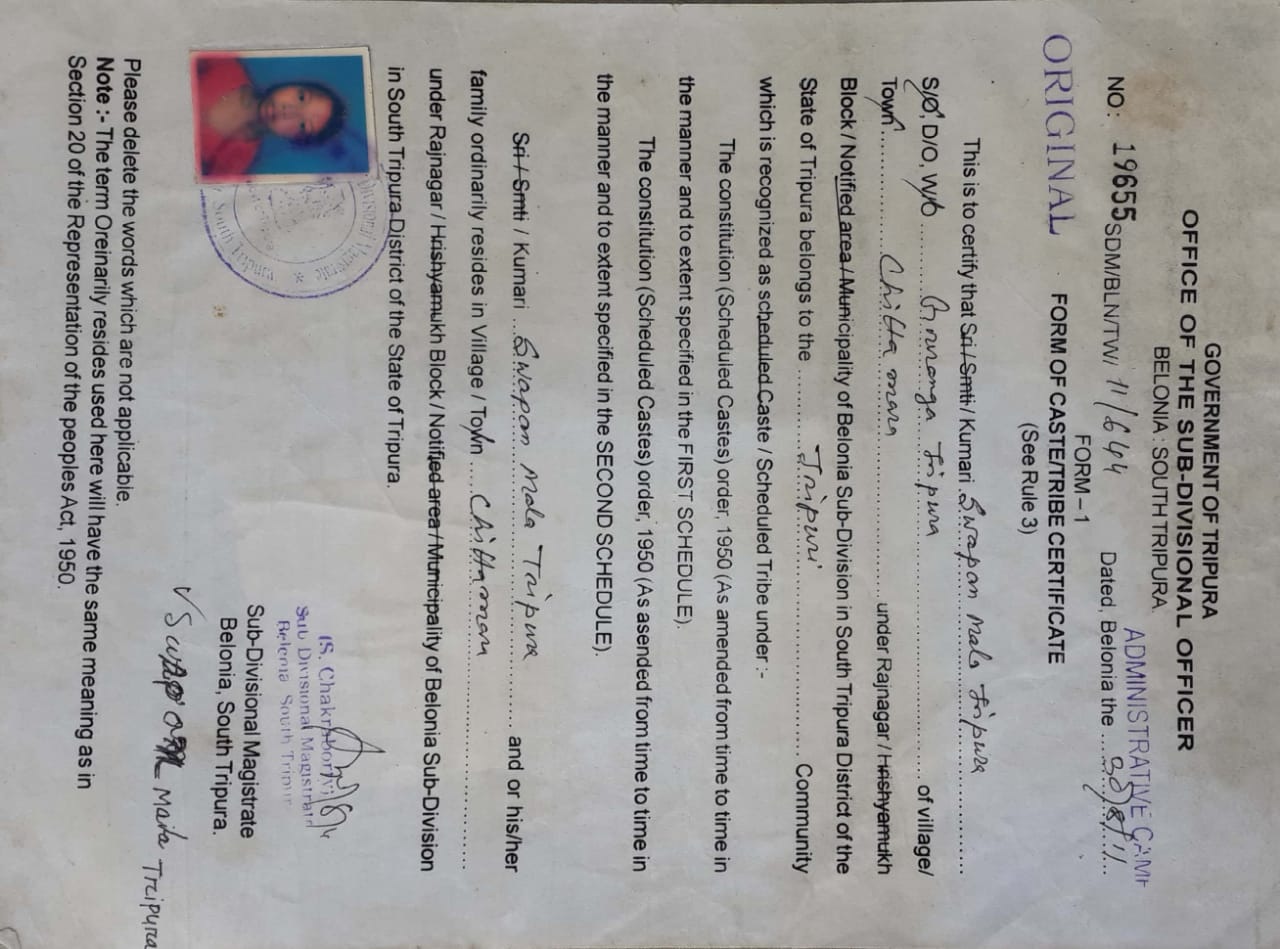 GOVERNMENT OF TRIPURA
OFFICE OF THE SUB-DIVISIONAL OFFICER
BELONIA : SOUTH TRIPURA
ADMINISTRATIVE CAMP
NO: 19655 SDM/BLN/TW/ 11/644 Dated, Belonia the
FORM – 1
ORIGINAL FORM OF CASTE/TRIBE CERTIFICATE
(See Rule 3)
This is to certify that Sri / Smti / Kumari Swapan Mala Tripura
S/O, D/O, W/o Tripura of village/
Town Chittamara under Rajnagar / Hrishyamukh
Block / Notified area / Municipality of Belonia Sub-Division in South Tripura District of the
State of Tripura belongs to the Tripuri Community
which is recognized as scheduled Caste / Scheduled Tribe under :-
The constitution (Scheduled Castes) order, 1950 (As amended from time to time in
the manner and to extent specified in the FIRST SCHEDULE).
The constitution (Scheduled Castes) order, 1950 (As asended from time to time in
the manner and to extent specified in the SECOND SCHEDULE).
Sri / Smti / Kumari Swapan Mala Tripura and or his/her
family ordinarily resides in Village / Town Chittamara
under Rajnagar / Hrishyamukh Block / Notified area / Municipality of Belonia Sub-Division
in South Tripura District of the State of Tripura.
(S. Chakraborty)
Sub Divisional Magistrate
Belonia South Tripura
Sub-Divisional Magistrate
Belonia, South Tripura.
Mala Tripura
Please delete the words which are not applicable.
Note :- The term Oreinarily resides used here will have the same meaning as in
Section 20 of the Representation of the peoples Act, 1950.